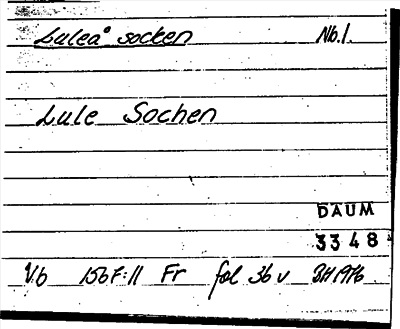 Luleå socken Nb.1.
Lule Sochen
DAUM
3348
Vb 1567:11 Fr fol 36 v BH 1976